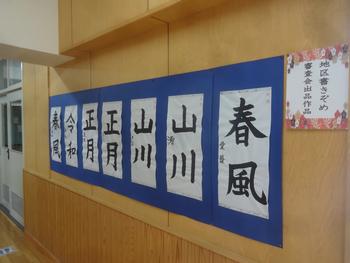 地区書きぞめ
審査会出品作品
春風
山川
山川
正月
正月
令和
春風